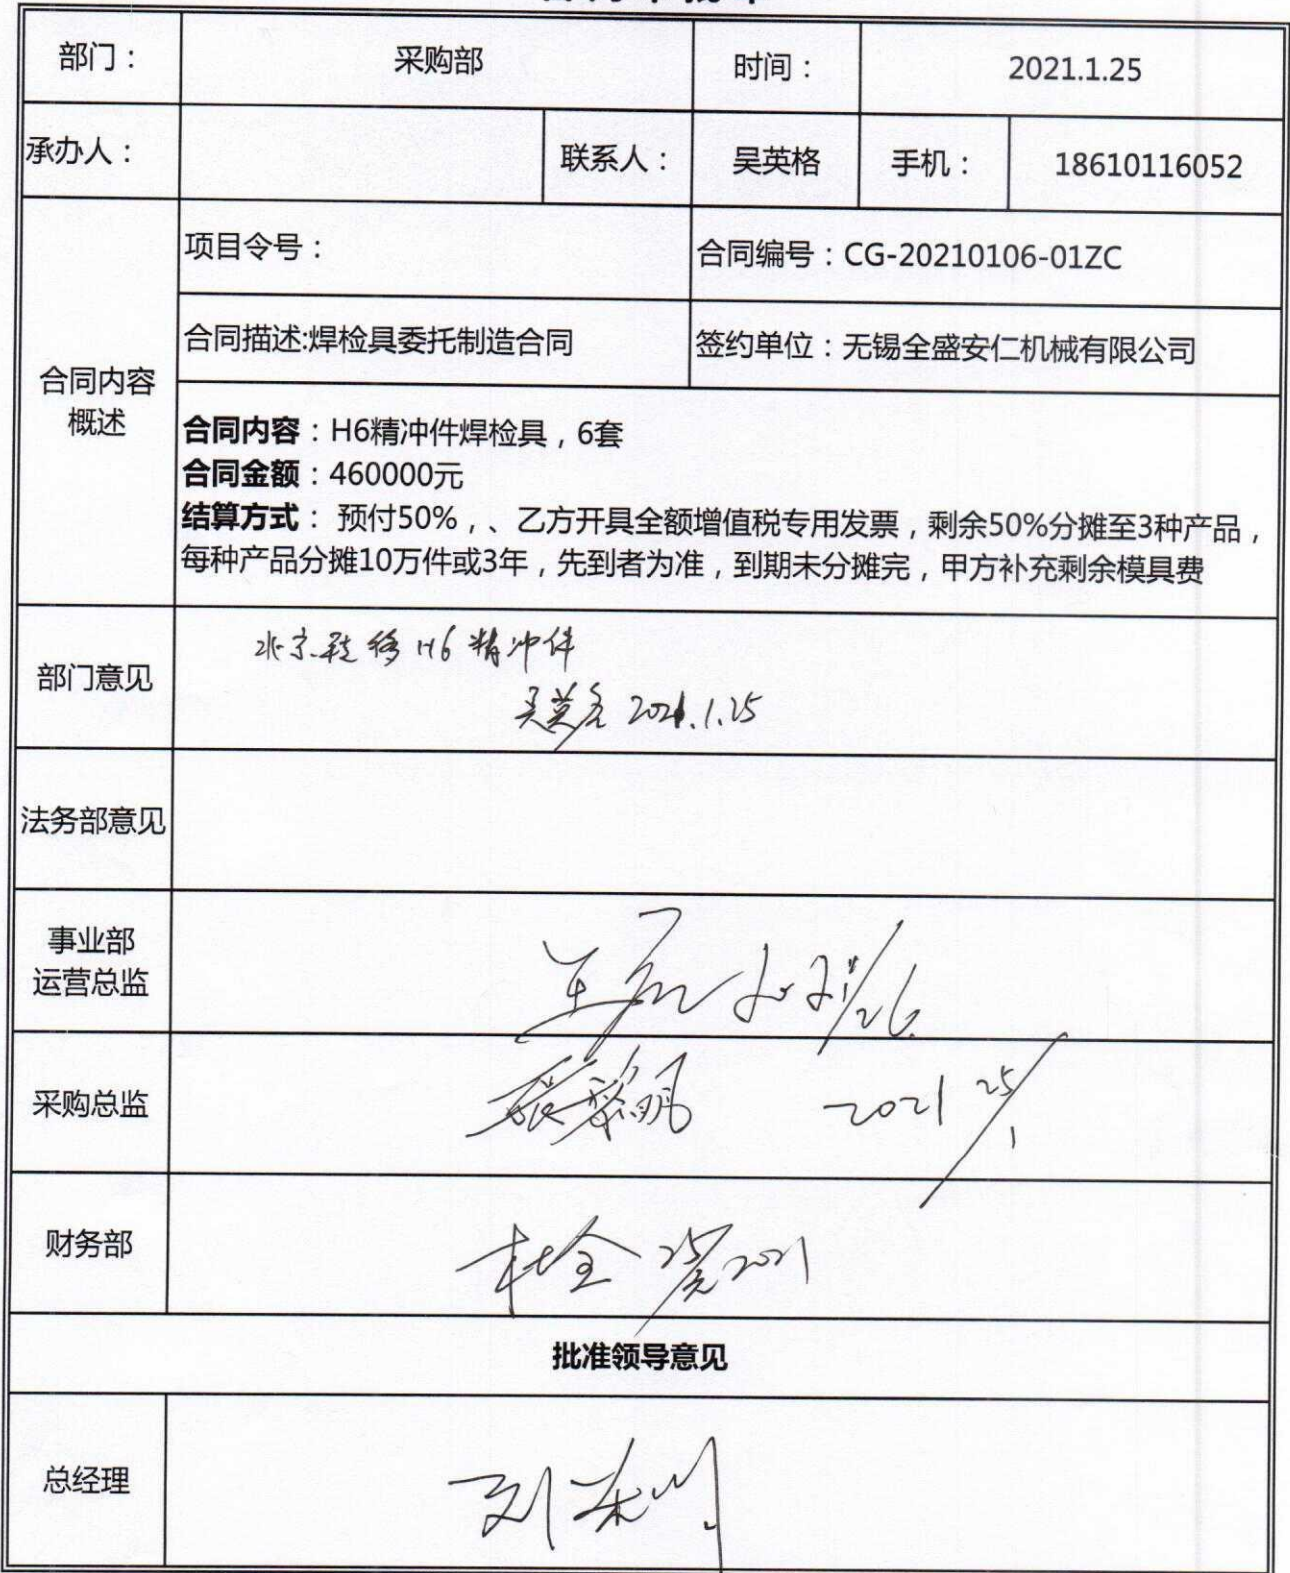 部门： 采购部 时间： 2021.1.25
承办人： 联系人： 吴英格 手机： 18610116052
项目令号： 合同编号：CG-20210106-01ZC
合同描述:焊检具委托制造合同 签约单位：无锡全盛安仁机械有限公司
合同内容
概述
合同内容：H6精冲件焊检具，6套
合同金额：460000元
结算方式： 预付50%，、乙方开具全额增值税专用发票，剩余50%分摊至3种产品，
每种产品分摊10万件或3年，先到者为准，到期未分摊完，甲方补充剩余模具费
部门意见
北京 H6精冲件
吴英格 2021.1.25
法务部意见
事业部
运营总监
采购总监 2021 25/1
财务部 2021
批准领导意见
总经理